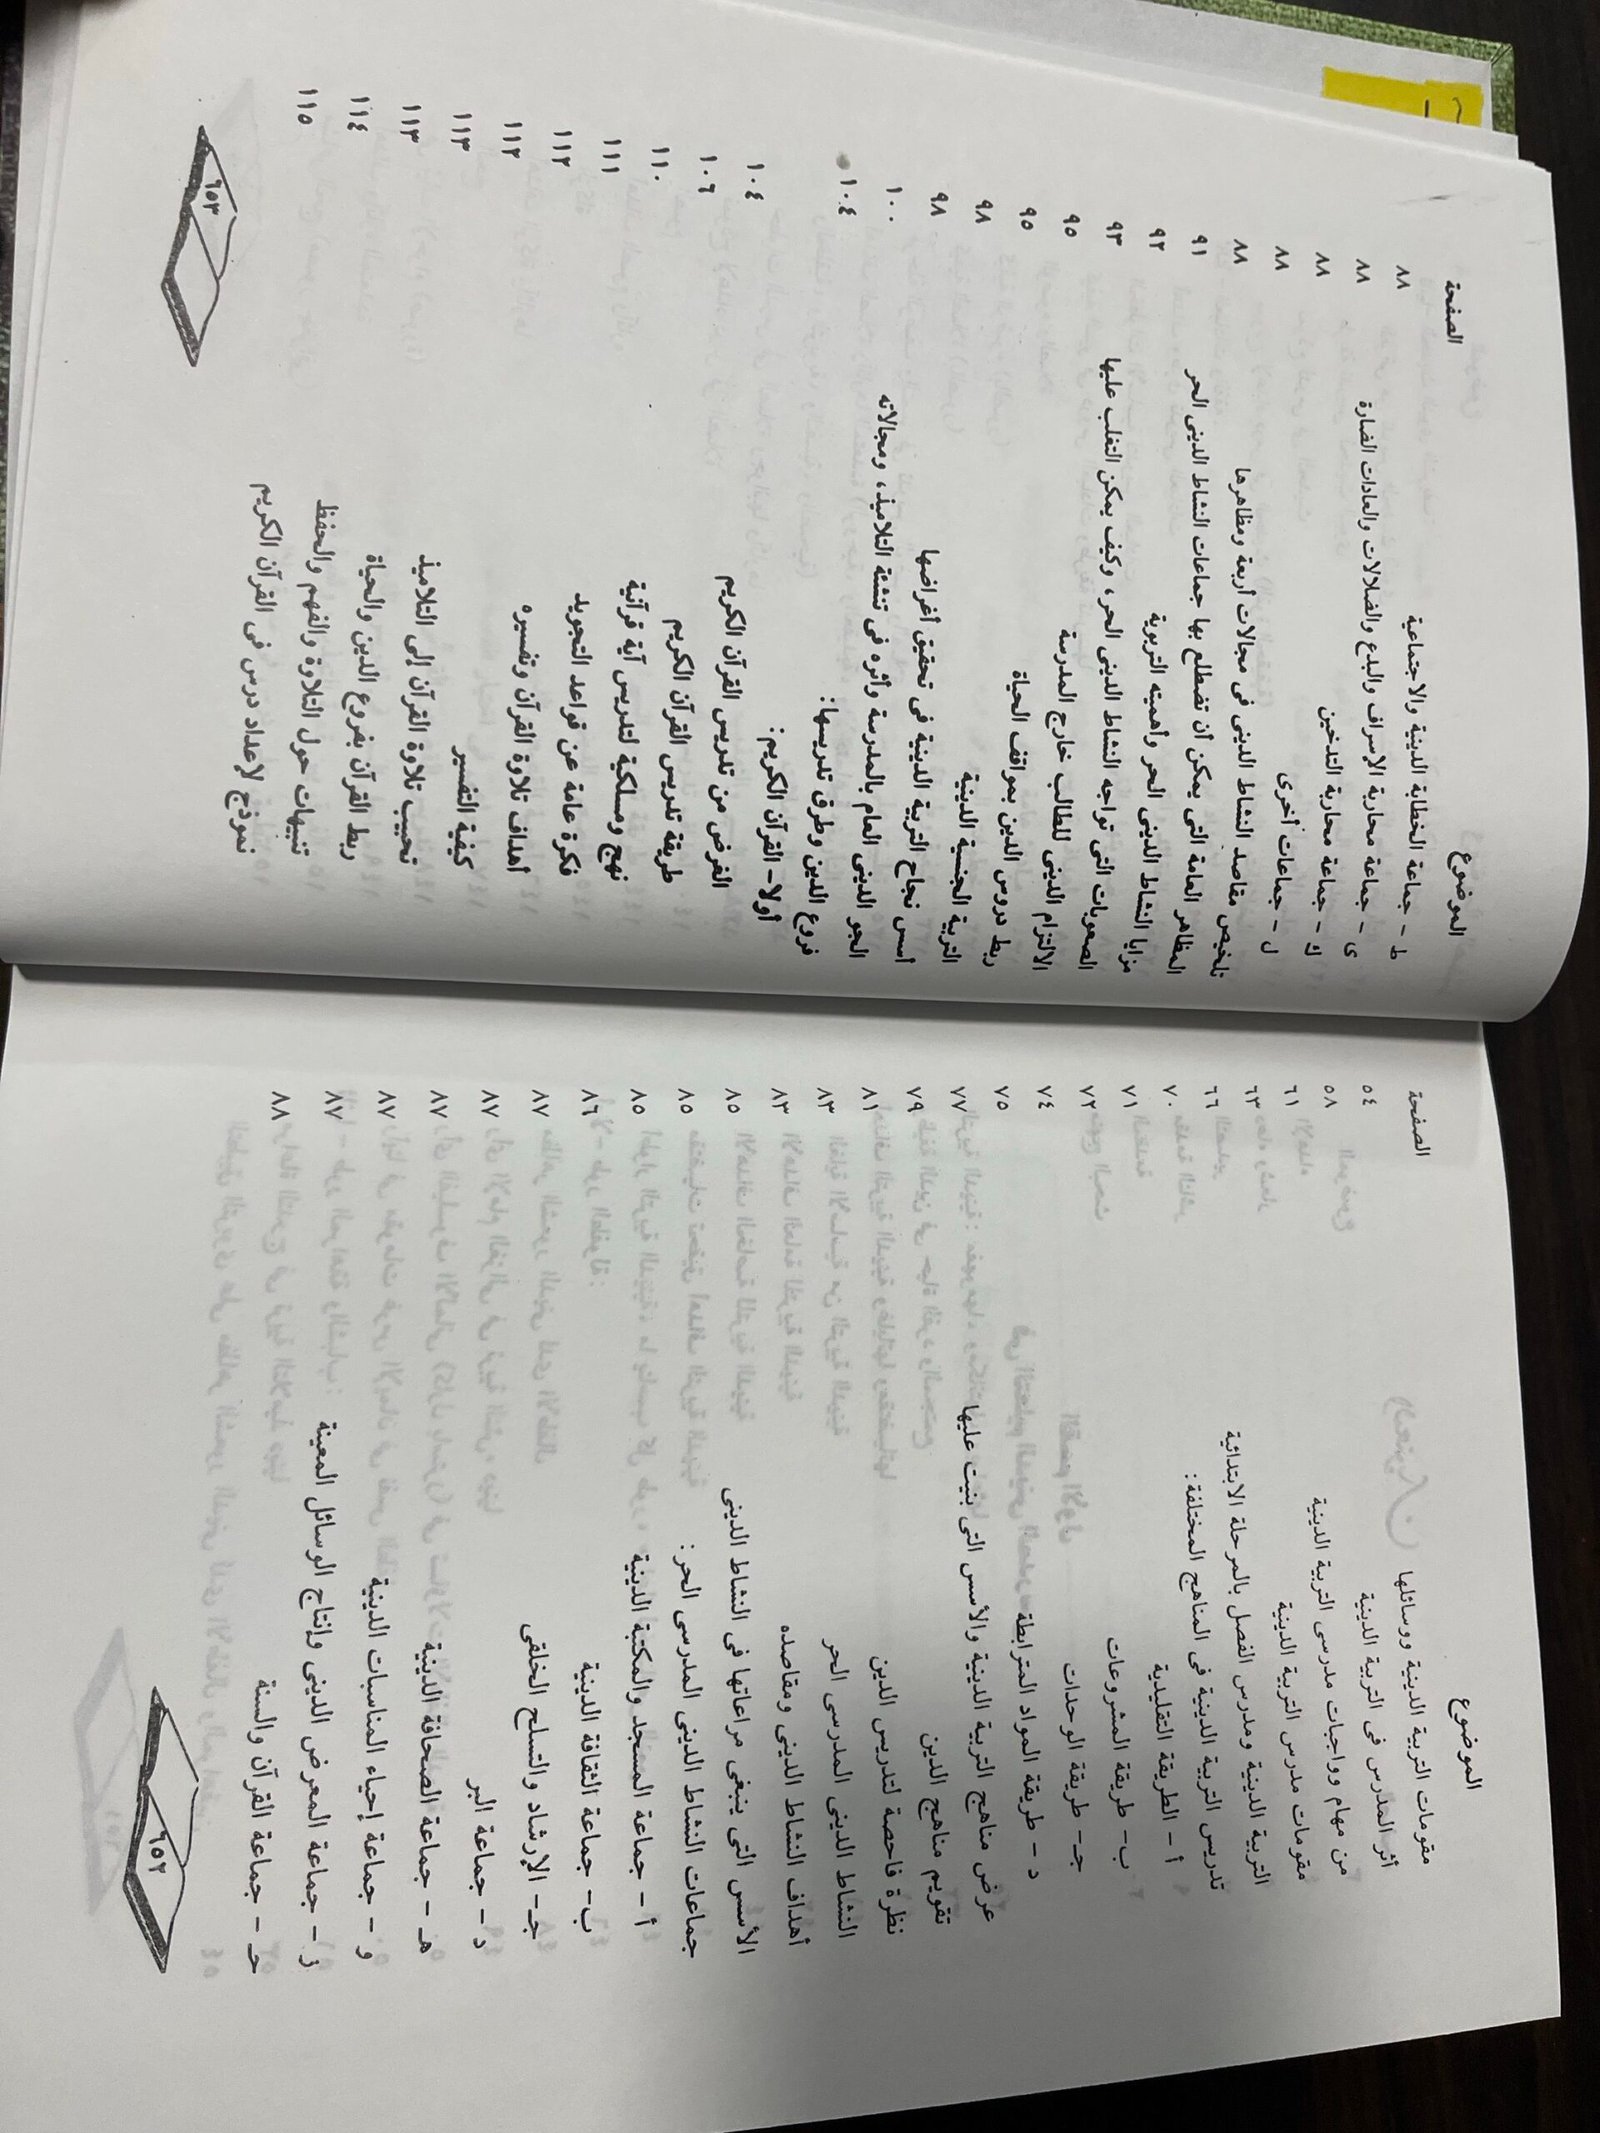 الموضوع الصفحة
مقومات التربية الدينية ووسائلها ٥٤
أثر المدرس فى التربية الدينية ٥٨
من مهام وواجبات مدرسى التربية الدينية ٦١
مقومات مدرس التربية الدينية ٦٣
التربية الدينية ومدرس الفصل بالمرحلة الابتدائية ٦٦
تدريس التربية الدينية فى المناهج المختلفة: ٧٠
أ - الطريقة التقليدية ٧١
ب- طريقة المشروعات ٧٢
جـ- طريقة الوحدات ٧٤
د - طريقة المواد المترابطة ٧٥
عرض مناهج التربية الدينية والأسس التى بنيت عليها ٧٧
تقويم مناهج الدين ٧٩
نظرة فاحصة لتدريس الدين ٨١
النشاط الدينى المدرسى الحر ٨٣
أهداف النشاط الدينى ومقاصده ٨٣
الأسس التى ينبغى مراعاتها فى النشاط الدينى ٨٥
جماعات النشاط الدينى المدرسى الحر: ٨٥
أ - جماعة المسجد والمكتبة الدينية ٨٥
ب- جماعة الثقافة الدينية ٨٦
جـ- الإرشاد والتسلح الخلقى ٨٧
د - جماعة البر ٨٧
هـ - جماعة الصحافة الدينية ٨٧
و - جماعة إحياء المناسبات الدينية ٨٧
ز - جماعة المعرض الدينى وإنتاج الوسائل المعينة ٨٧
حـ - جماعة القرآن والسنة ٨٨
٦٥٢
الموضوع الصفحة
ط - جماعة الخطابة الدينية والاجتماعية ٨٨
ى - جماعة محاربة الإسراف والبدع والضلالات والعادات الضارة ٨٨
ك - جماعة محاربة التدخين ٨٨
ل - جماعات أخرى ٨٨
تلخيص مقاصد النشاط الدينى فى مجالات أربعة ومظاهرها ٨٨
المظاهر العامة التى يمكن أن تضطلع بها جماعات النشاط الدينى الحر ٩١
مزايا النشاط الدينى الحر وأهميته التربوية ٩٢
الصعوبات التى تواجه النشاط الدينى الحر، وكيف يمكن التغلب عليها ٩٣
الالتزام الدينى للطالب خارج المدرسة ٩٥
ربط دروس الدين بمواقف الحياة ٩٥
التربية الجنسية الدينية ٩٨
أسس نجاح التربية الدينية فى تحقيق أغراضها ٩٨
الجو الدينى العام بالمدرسة وأثره فى تنشئة التلاميذ، ومجالاته ١٠٠
فروع الدين وطرق تدريسها: ١٠٤
أولا- القرآن الكريم:
الغرض من تدريس القرآن الكريم ١٠٤
طريقة تدريس القرآن الكريم ١٠٦
نهج ومسلكية لتدريس آية قرآنية ١١٠
فكرة عامة عن قواعد التجويد ١١١
أهداف تلاوة القرآن وتفسيره ١١٢
كيفية التفسير ١١٢
تحبيب تلاوة القرآن إلى التلاميذ ١١٣
ربط القرآن بفروع الدين والحياة ١١٣
تنبيهات حول التلاوة والفهم والحفظ ١١٤
نموذج لإعداد درس فى القرآن الكريم ١١٥
٦٥٣